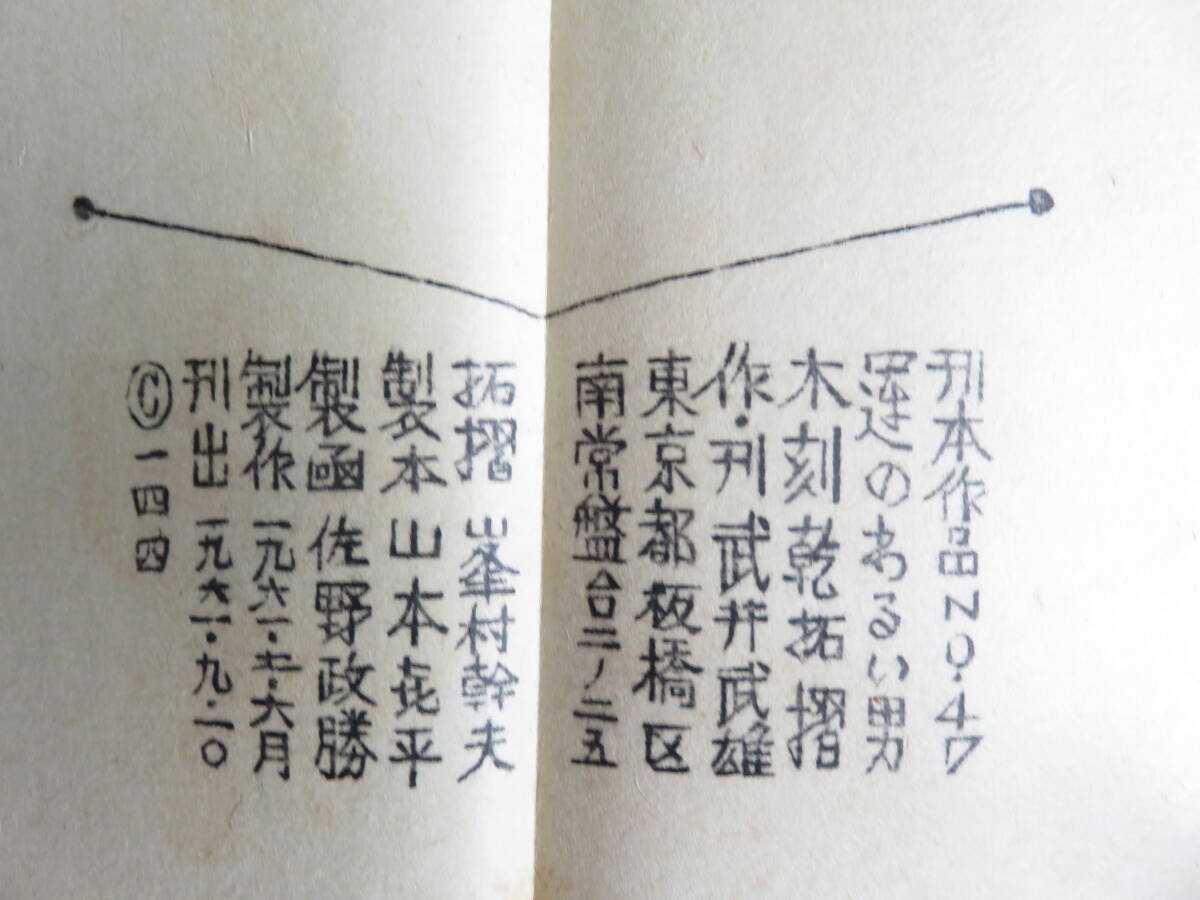 刊本作品NO.47
運のわるい男
木刻乾拓摺
作・刊 武井武雄
東京都板橋区
南常盤台二ノ二五
拓摺 峯村幹夫
製本 山本㐂平
製函 佐野政勝
製作 一九六一・・六月
刊出 一九六一・九・一〇
©一四四